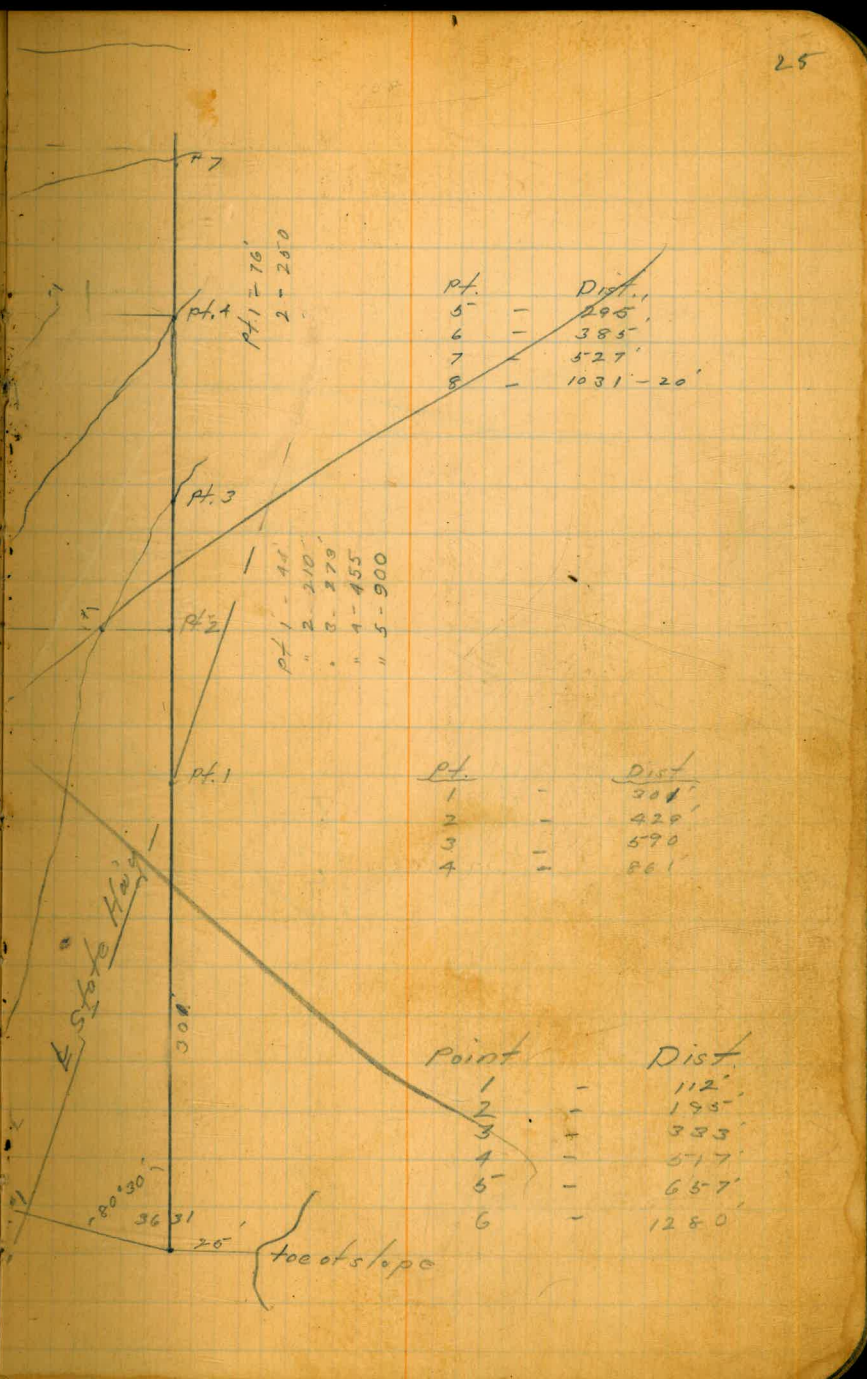 25
Pt. 7
Pt. 4
Pt. 1 - 76'
2 - 250
Pt. Dist.
5 - 295'
6 - 385'
7 - 527'
8 - 1031 - 20'
Pt. 3
#1
Pt. 2
Pt 1 - 44'
" 2 - 210'
" 3 - 279
" 4 - 455
" 5 - 900
Pt. 1
Pt. Dist
1 - 301'
2 - 429'
3 - 590
4 - 861'
State
301'
Point Dist.
1 - 112'
2 - 195'
3 - 333'
4 - 517'
5 - 657'
6 - 1280'
#1
80°30'
36 31
25'
toe of slope